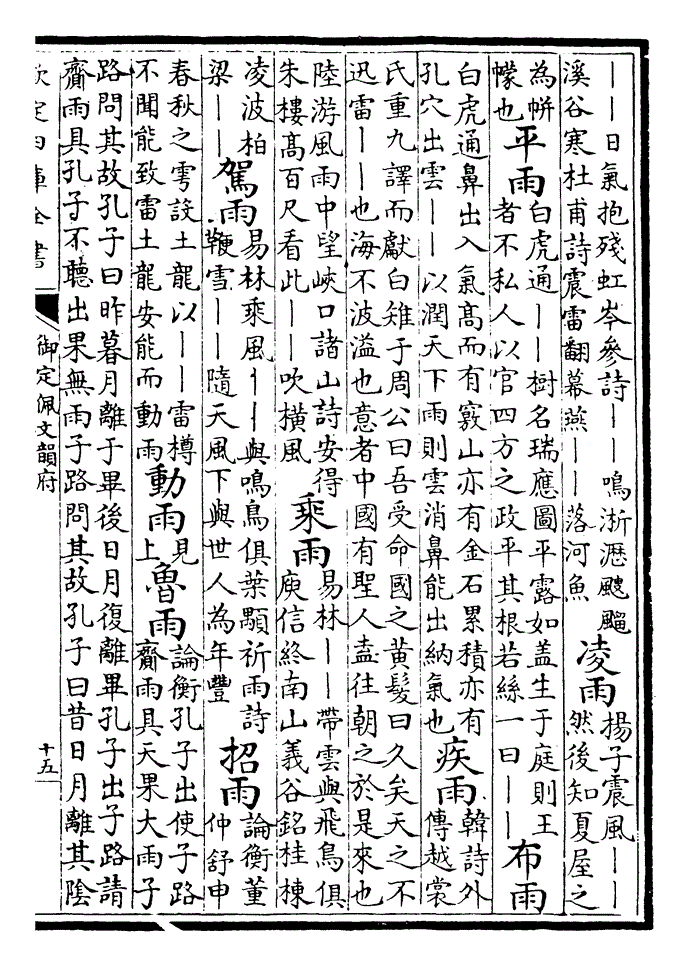 ——日氣抱殘虹岑參詩——鳴淅瀝颼飀
溪谷寒杜甫詩震雷翻幕燕——落河魚
凌雨
揚子震風——
然後知夏屋之
為帡
幪也
平雨
白虎通——樹名瑞應圖平露如蓋生于庭則王
者不私人以官四方之政平其根若絲一曰——
布雨
白虎通鼻出入氣高而有竅山亦有金石累積亦有
孔穴出雲——以潤天下雨則雲消鼻能出納氣也
疾雨
韓詩外
傳越裳
氏重九譯而獻白雉于周公曰吾受命國之黃髮曰久矣天之不
迅雷——也海不波溢也意者中國有聖人盍往朝之於是來也
陸游風雨中望峽口諸山詩安得
朱樓髙百尺看此——吹橫風
乘雨
易林——帶雲與飛鳥俱
庾信終南山義谷銘桂棟
凌波柏
梁——
駕雨
易林乘風——與鳴鳥俱葉顒祈雨詩
鞭雪——隨天風下與世人為年豐
招雨
論衡董
仲舒申
春秋之雩設土龍以——雷樽
不聞能致雷土龍安能而動雨
動雨
見
上
魯雨
論衡孔子出使子路
齎雨具天果大雨子
路問其故孔子曰昨暮月離于畢後日月復離畢孔子出子路請
齎雨具孔子不聽出果無雨子路問其故孔子曰昔日月離其陰
欽定四庫全書
御定佩文韻府
十五